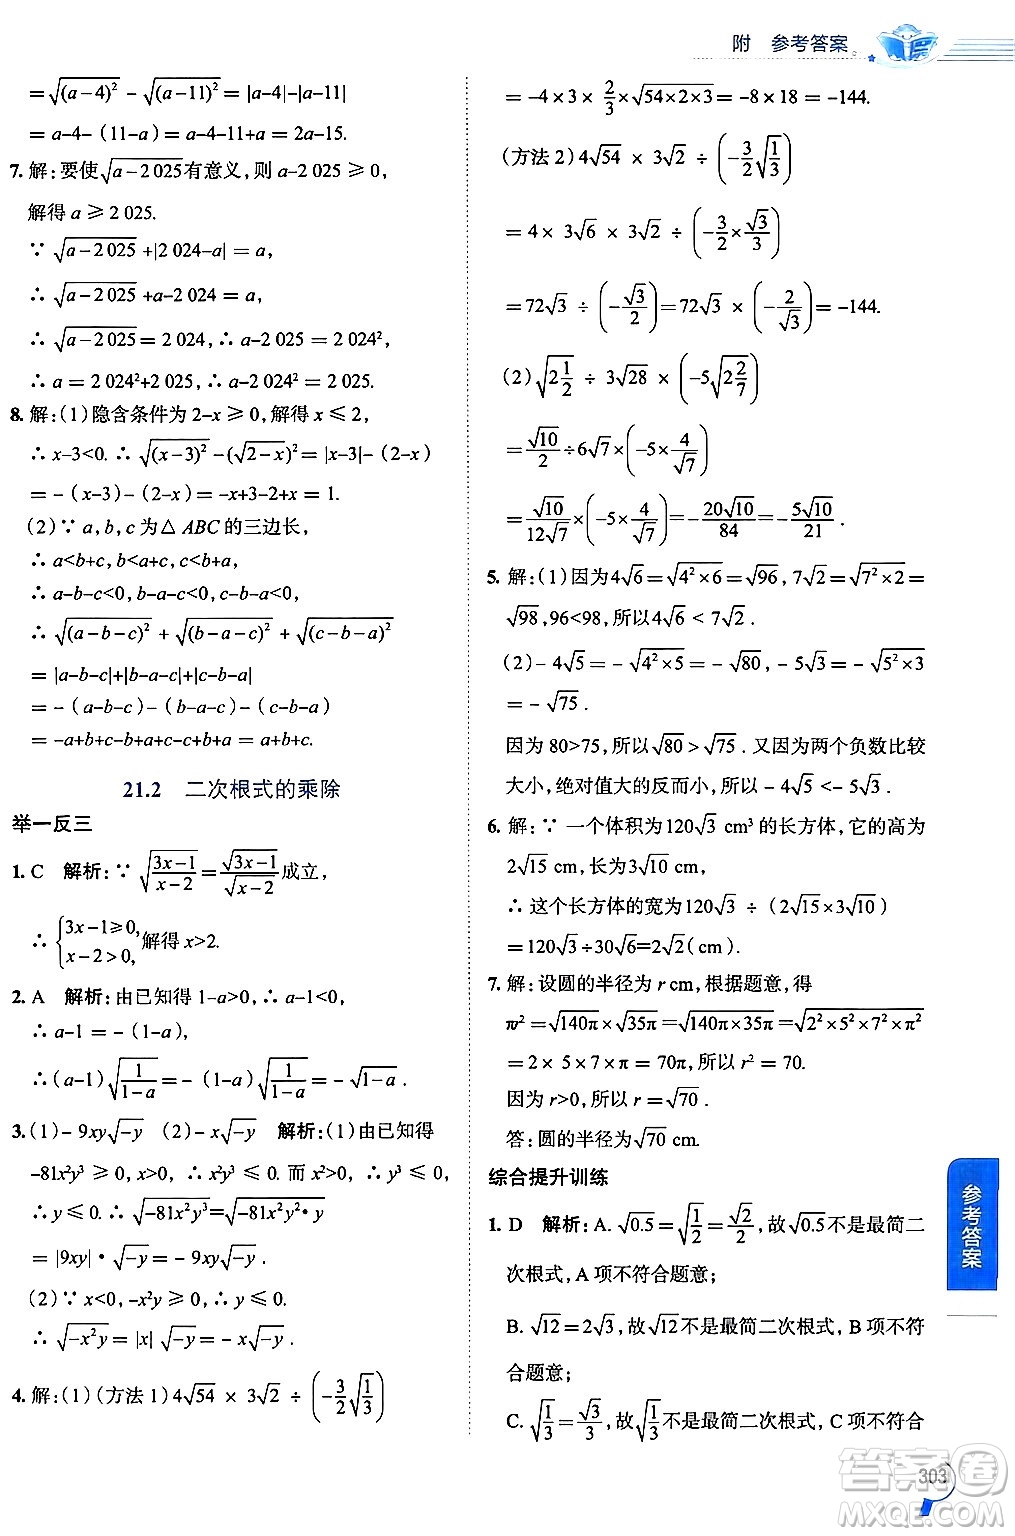 附 参考答案
= √(a-4)² - √(a-11)² = |a-4|-|a-11|
= a-4-(11-a) = a-4-11+a = 2a-15.
7. 解:要使√(a-2 025)有意义,则 a-2 025 ≥ 0,
解得 a ≥ 2 025.
∵ √(a-2 025) +|2 024-a| = a,
∴ √(a-2 025) +a-2 024 = a,
∴ √(a-2 025) = 2 024,
∴ a = 2 024²+2 025,∴ a-2 024² = 2 025.
8. 解:(1)隐含条件为 2-x ≥ 0,解得 x ≤ 2,
∴ x-3<0. ∴ √(x-3)² -(√(2-x))² = |x-3|-(2-x)
= -(x-3)-(2-x) = -x+3-2+x = 1.
(2)∵ a,b,c 为 △ ABC 的三边长,
∴ a<b+c,b<a+c,c<b+a,
∴ a-b-c<0,b-a-c<0,c-b-a<0,
∴ √(a-b-c)² + √(b-a-c)² + √(c-b-a)²
= |a-b-c|+|b-a-c|+|c-b-a|
= -(a-b-c)-(b-a-c)-(c-b-a)
= -a+b+c-b+a+c-c+b+a = a+b+c.
21.2 二次根式的乘除
举一反三
1. C 解析:∵ √((3x-1)/(x-2)) = √(3x-1)/√(x-2) 成立,
∴ {3x-1≥0, x-2>0, 解得 x>2.
2. A 解析:由已知得 1-a>0,∴ a-1<0,
∴ a-1 = -(1-a),
∴(a-1)√(1/(1-a)) = -(1-a)√(1/(1-a)) = -√(1-a).
3.(1)- 9xy√(-y) (2)-x√(-y) 解析:(1)由已知得
-81x²y³ ≥ 0,∴ y³ ≤ 0. 而 x ≥ 0,∴ y³ ≤ 0,
∴ y ≤ 0. ∴ √(-81x²y³) = √(-81x²y²•y)
= |9xy|•√(-y) = -9xy√(-y).
(2)∵ x<0,-x²y ≥ 0,∴ y ≤ 0.
∴ √(-x²y) = |x| √(-y) = -x√(-y).
4. 解:(1)(方法 1)4√54 × 3√2 ÷ (-3/2 √(1/3))
= -4 × 3 × 2/3 × √(54×2×3) = -8 × 18 = -144.
(方法 2)4√54 × 3√2 ÷ (-3/2 √(1/3))
= 4 × 3√6 × 3√2 ÷ (-3/2 × √3/3)
= 72√3 ÷ (-√3/2) = 72√3 × (-2/√3) = -144.
(2)√(2 1/2) ÷ 3√28 × (-5√(2 2/7))
= √10/2 ÷ 6√7 × (-5 × 4/√7)
= √10/(12√7) × (-5 × 4/√7) = -20√10/84 = -5√10/21.
5. 解:(1)因为4√6 = √(4²×6) = √96,7√2 = √(7²×2) =
√98,96<98,所以4√6 < 7√2.
(2)- 4√5 = -√(4²×5) = -√80,-5√3 = -√(5²×3)
= -√75.
因为 80>75,所以√80 > √75. 又因为两个负数比较
大小,绝对值大的反而小,所以-4√5 < -5√3.
6. 解:∵ 一个体积为120√3 cm³ 的长方体,它的高为
2√15 cm,长为3√10 cm,
∴ 这个长方体的宽为120√3 ÷(2√15 × 3√10)
= 120√3÷30√6=2√2(cm).
7. 解:设圆的半径为 r cm,根据题意,得
πr² = √140π × √35π = √(140π×35π) = √(2²×5²×7²×π²)
= 2 × 5 × 7 × π = 70π,所以 r² = 70.
因为 r>0,所以 r = √70.
答:圆的半径为√70 cm.
综合提升训练
1. D 解析:A. √0.5 = √(1/2) = √2/2,故√0.5不是最简二
次根式,A 项不符合题意;
B. √12 = 2√3,故√12不是最简二次根式,B 项不符
合题意;
C. √(1/3) = √3/3,故√(1/3)不是最简二次根式,C 项不符合
参考答案
303
答案圈
MXQE.COM